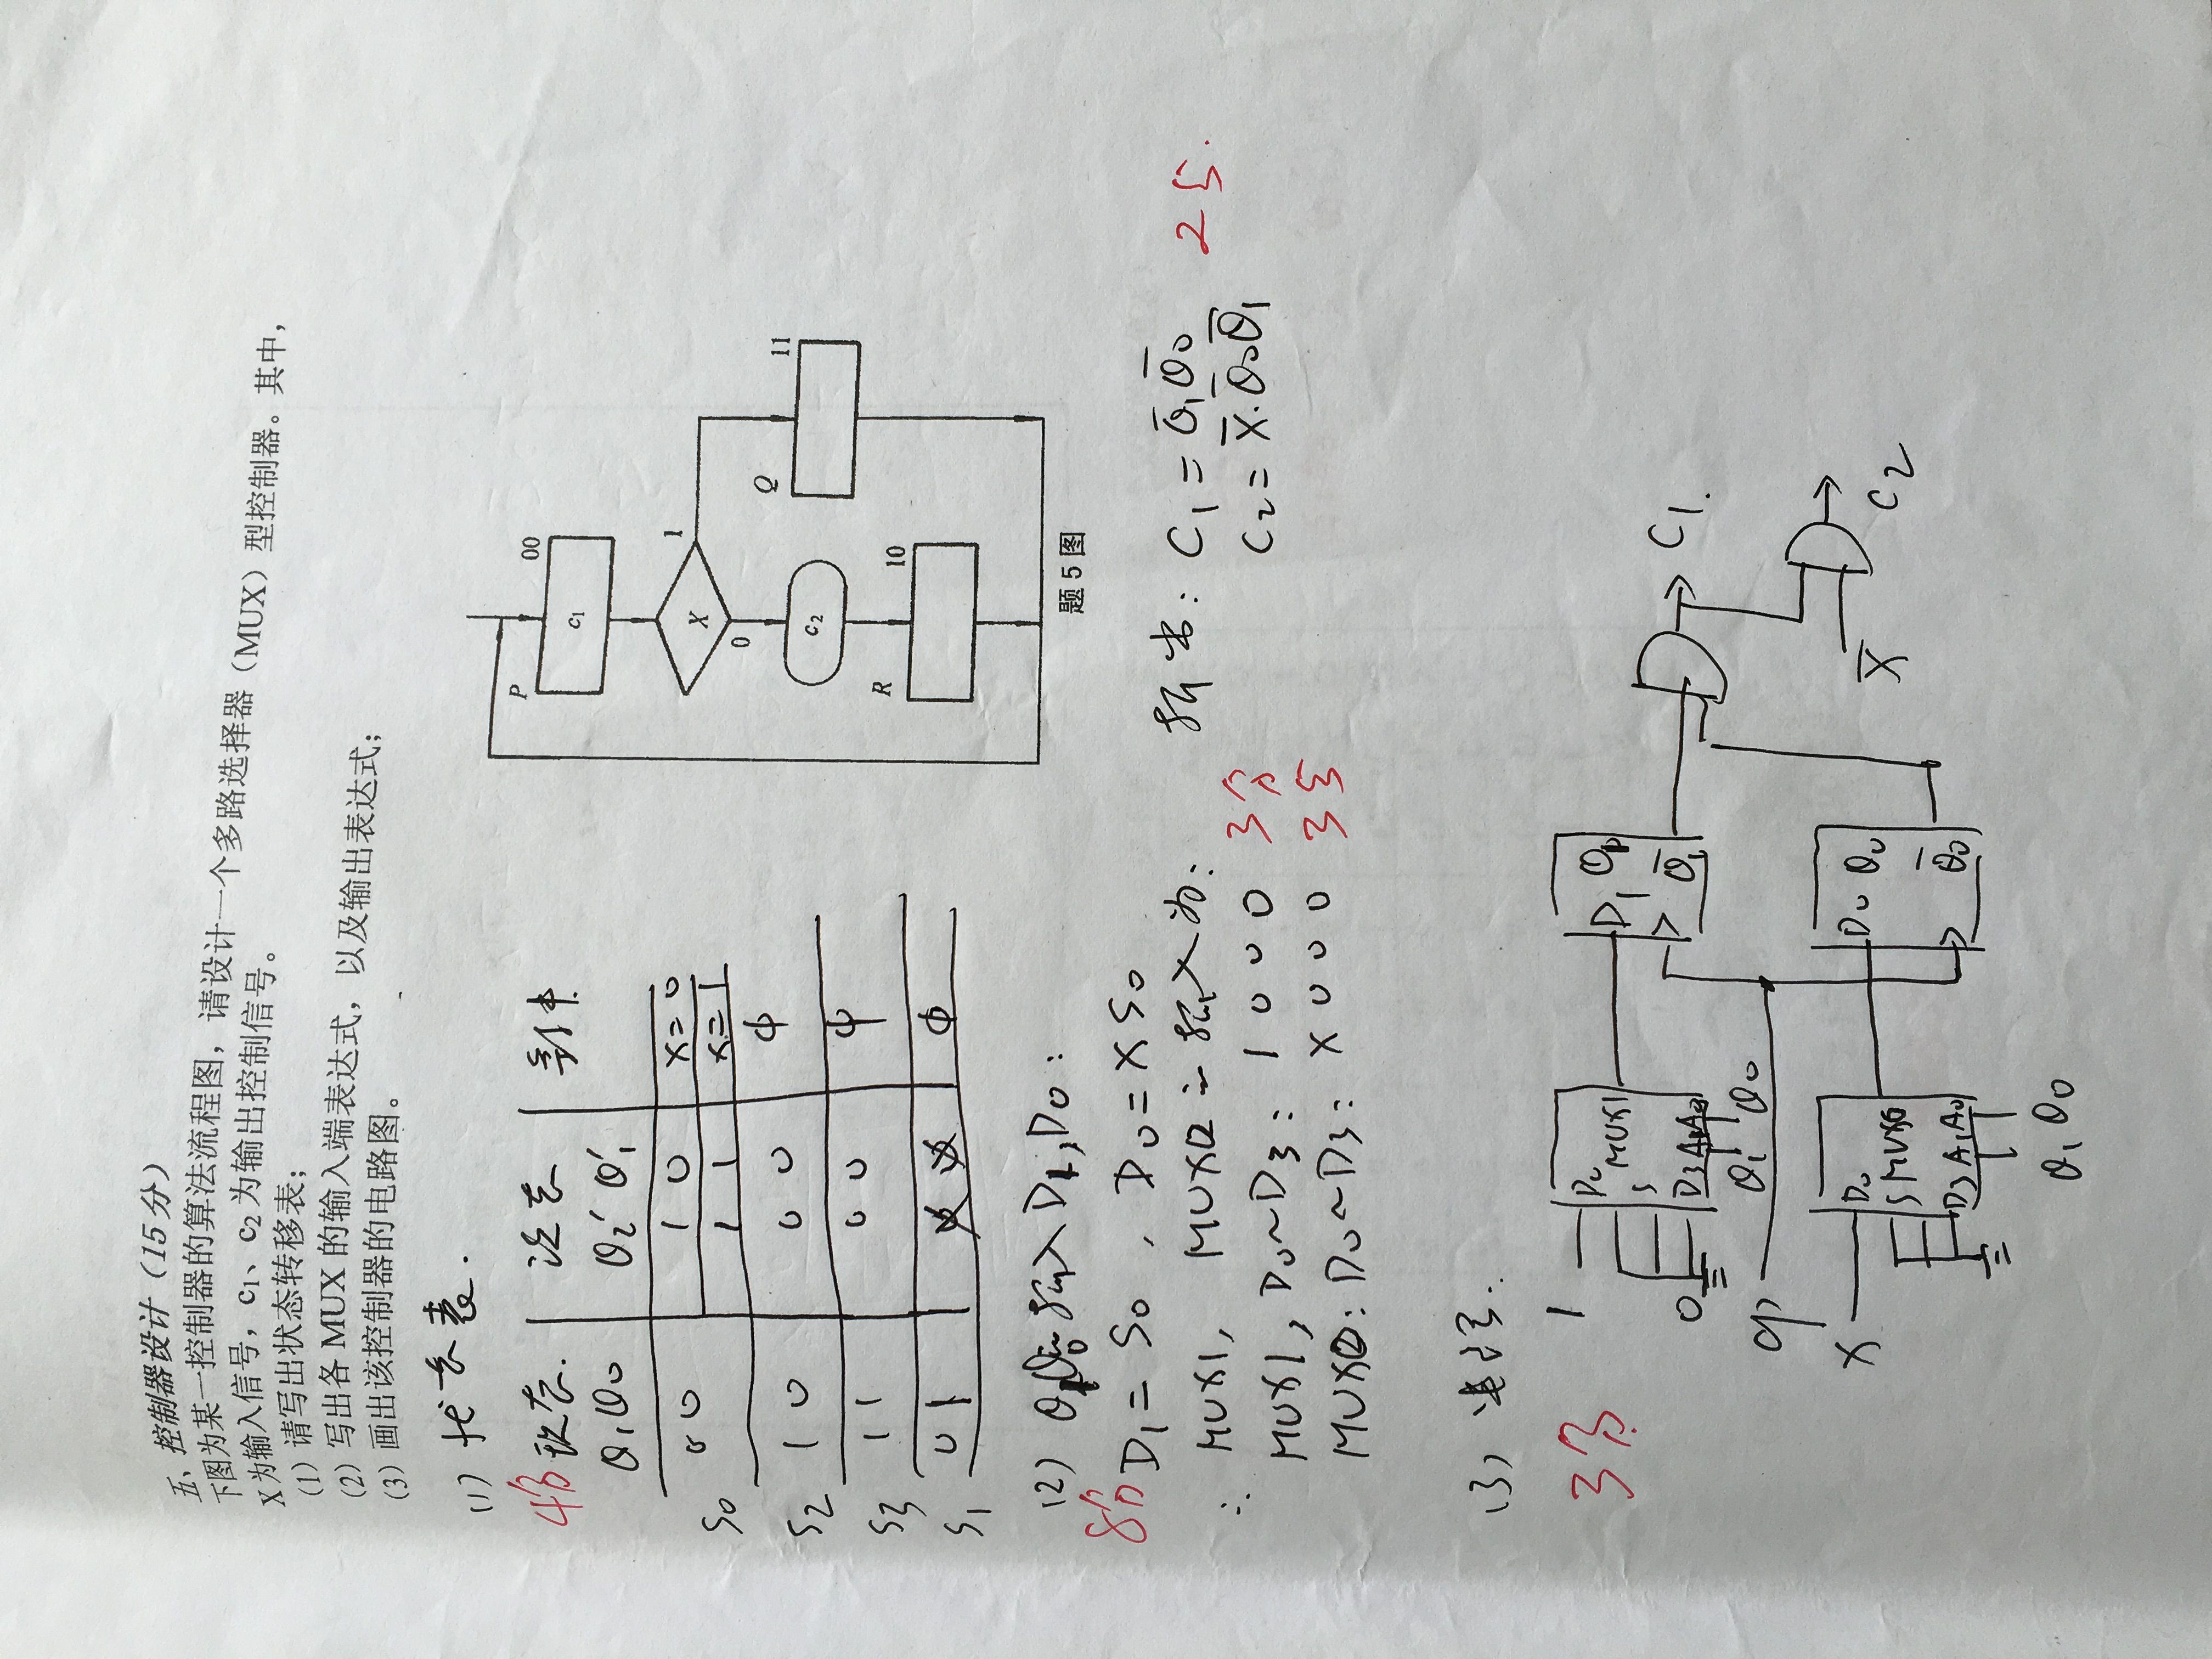 五、控制器设计（15分）
下图为某一控制器的算法流程图，请设计一个多路选择器（MUX）型控制器。其中，
X为输入信号，c₁、c₂为输出控制信号。
(1) 请写出状态转移表；
(2) 写出各 MUX 的输入端表达式，以及输出表达式；
(3) 画出该控制器的电路图。
(1) 状态表.
4分 现态. 次态 条件
Q₁Q₀ Q₂′ Q₁′
S₀ 0 0 1 0 X=0
1 1 X=1
S₂ 1 0 0 0 φ
S₃ 1 1 0 0 φ
S₁ 0 1 φ
P 00
c₁
X 1
0
Q 11
c₂
R 10
题 5 图
(2) 输入 D₁,D₀：
8分 D₁ = S₀ , D₀ = X S₀
∴ MUX1, MUX0 之输入为：
MUX1, D₀~D₃: 1 0 0 0 3分
MUX0: D₀~D₃: X 0 0 0 3分
输出: C₁ = Q̅₁Q̅₀ 2分.
C₂ = X̅·Q̅₀Q̅₁
(3) 电路.
3分
1 D₀ MUX1 D₁ Q₁
0 D₃ A₁A₀ Q̅₁ C₁.
Q₁ Q₀
cp
X D₀ MUX0 D₀ Q₀
D₃ A₁A₀ Q̅₀ X̅ C₂
Q₁ Q₀